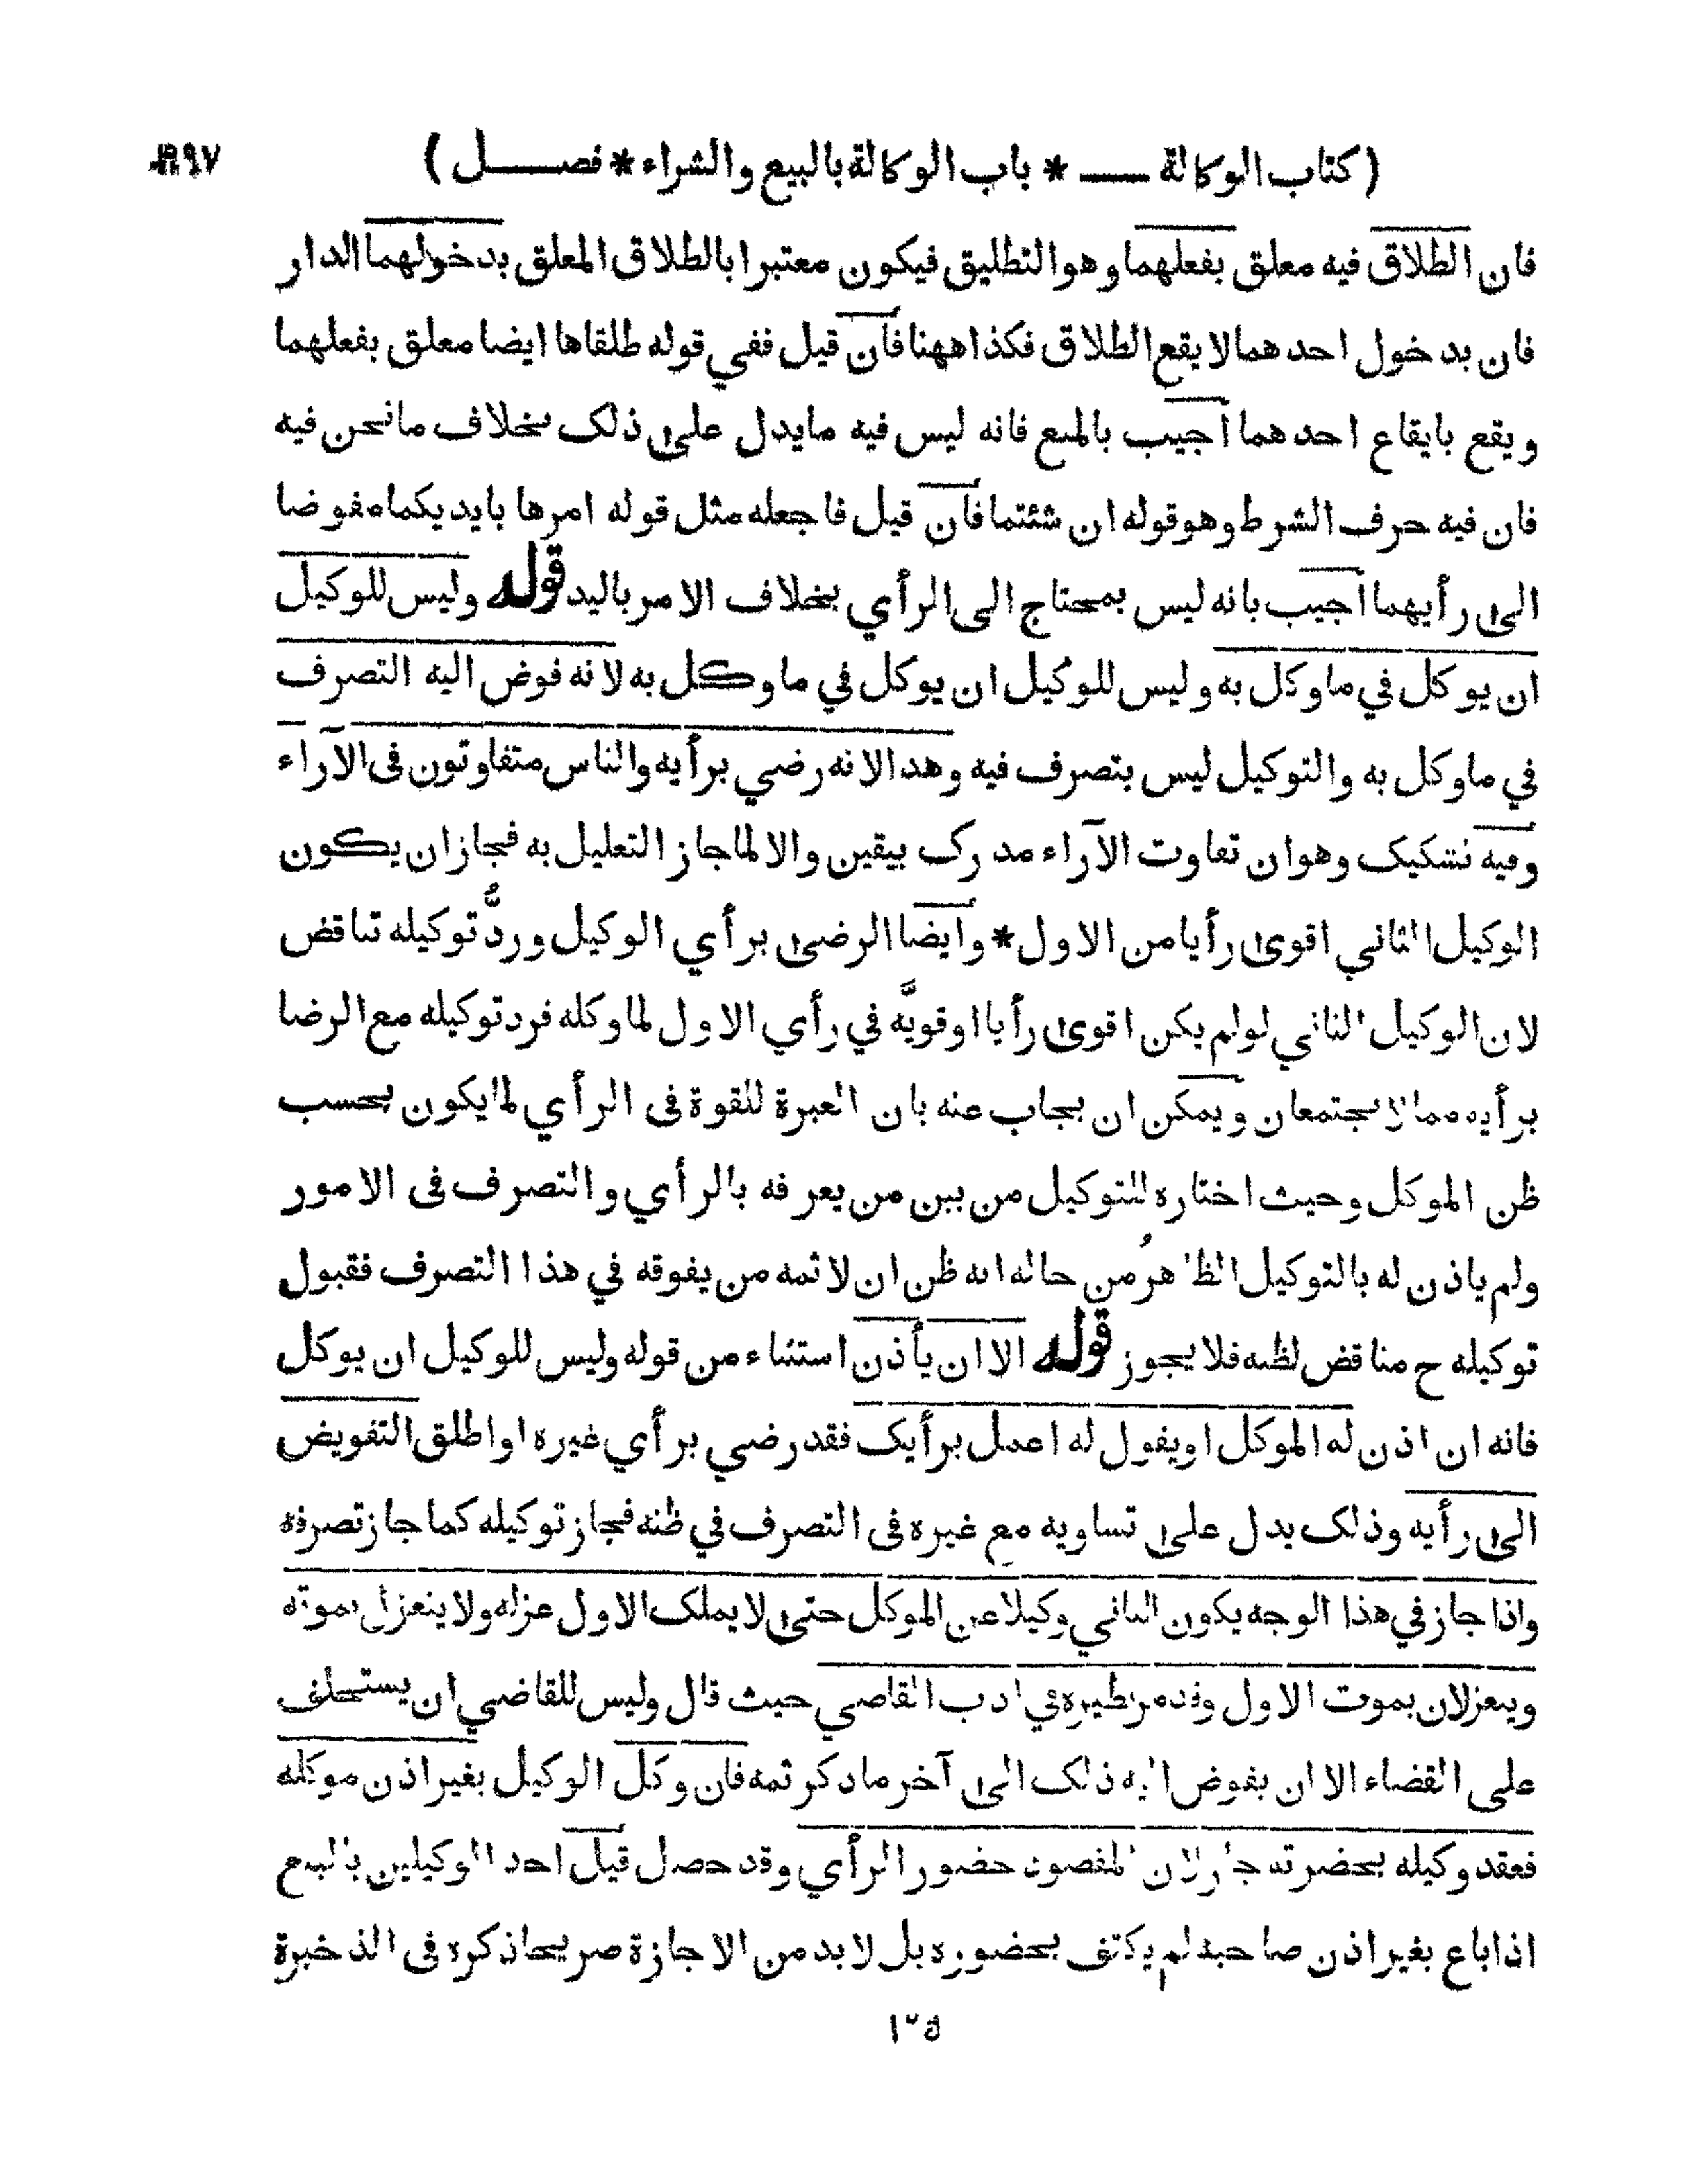 ( كتاب الوكالة — * باب الوكالة بالبيع والشراء * فصـــل )
فان الطلاق فيه معلق بفعلهما وهو التطليق فيكون معتبرا بالطلاق المعلق بدخولهما الدار
فان بدخول احدهما لا يقع الطلاق فكذا ههنا فان قيل ففي قوله طلقاها ايضا معلق بفعلهما
ويقع بايقاع احدهما اجيب بالمنع فانه ليس فيه مايدل على ذلك بخلاف مانحن فيه
فان فيه حرف الشرط وهو قوله ان شئتما فان قيل فاجعله مثل قوله امرها بايديكما مفوضا
الى رأيهما اجيب بانه ليس بمحتاج الى الرأي بخلاف الامر باليد قوله وليس للوكيل
ان يوكل في ماوكل به وليس للوكيل ان يوكل في ماوكل به لانه فوض اليه التصرف
في ماوكل به والتوكيل ليس بتصرف فيه وهذا لانه رضي برأيه والناس متفاوتون فى الآراء
وفيه تشكيك وهو ان تفاوت الآراء مدرك بيقين والا لما جاز التعليل به فجاز ان يكون
الوكيل الثاني اقوى رأيا من الاول * وايضا الرضى برأي الوكيل وردُّ توكيله تناقض
لان الوكيل الثاني لولم يكن اقوى رأيا او قويَّه في رأي الاول لما وكله فرد توكيله مع الرضا
برأيه مما لا يجتمعان ويمكن ان يجاب عنه بان العبرة للقوة فى الرأي لما يكون بحسب
ظن الموكل وحيث اختاره للتوكيل من بين من يعرفه بالرأي والتصرف فى الامور
ولم ياذن له بالتوكيل الظاهرُ من حاله انه ظن ان لا ثمه من يفوقه في هذا التصرف فقبول
توكيله ح مناقض لظنه فلا يجوز قوله الا ان يأذن استثناء من قوله وليس للوكيل ان يوكل
فانه ان اذن له الموكل او يقول له اعمل برأيك فقد رضي برأي غيره او اطلق التفويض
الى رأيه وذلك يدل على تساويه مع غيره فى التصرف في ظنه فجاز توكيله كما جاز تصرفه
واذا جاز في هذا الوجه يكون الثاني وكيلا عن الموكل حتى لا يملك الاول عزله ولا ينعزل بموته
وينعزلان بموت الاول وقد مر نظيره في ادب القاضي حيث قال وليس للقاضي ان يستخلف
على القضاء الا ان يفوض اليه ذلك الى آخر ماذكر ثمه فان وكل الوكيل بغير اذن موكله
فعقد وكيله بحضرته جاز لان المقصود حضور الرأي وقد حصل قيل احد الوكيلين بالبيع
اذا باع بغير اذن صاحبه لم يكتف بحضوره بل لا بد من الاجازة صريحا ذكره فى الذخيرة